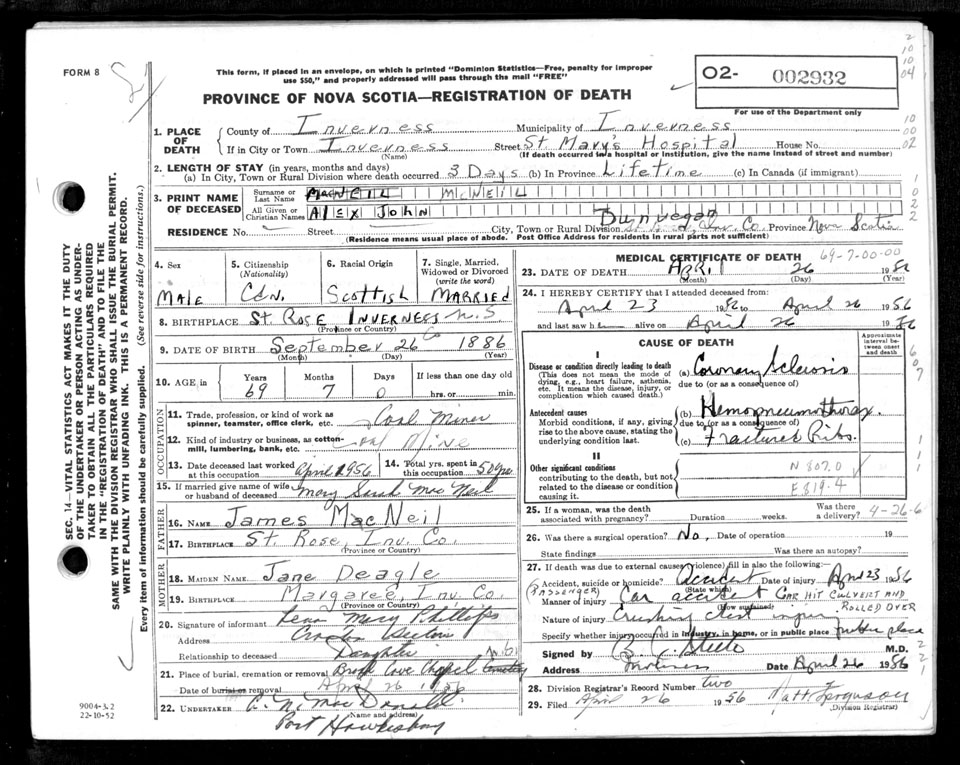 FORM 8
This form, if placed in an envelope, on which is printed "Dominion Statistics—Free, penalty for improper
use $50," and properly addressed will pass through the mail "FREE"
PROVINCE OF NOVA SCOTIA—REGISTRATION OF DEATH
02- 002932
For use of the Department only
2
10
10
04
10
00
02
1. PLACE OF DEATH
County of Inverness Municipality of Inverness
If in City or Town Inverness Street St Mary's Hospital House No.
(Name) (If death occurred in a hospital or institution, give the name instead of street and number)
2. LENGTH OF STAY (in years, months and days)
(a) In City, Town or Rural Division where death occurred 3 Days (b) In Province Lifetime (c) In Canada (if immigrant)
3. PRINT NAME OF DECEASED
Surname or Last Name MACNEIL McNEIL
All Given or Christian Names ALEX JOHN
Dunvegan
RESIDENCE No. Street City, Town or Rural Division Inv. Co. Province Nova Scotia
(Residence means usual place of abode. Post Office Address for residents in rural parts not sufficient)
SEC. 14—VITAL STATISTICS ACT MAKES IT THE DUTY
OF THE UNDERTAKER OR PERSON ACTING AS UNDER-
TAKER TO OBTAIN ALL THE PARTICULARS REQUIRED
IN THE "REGISTRATION OF DEATH" AND TO FILE THE
SAME WITH THE DIVISION REGISTRAR WHO SHALL ISSUE THE BURIAL PERMIT.
WRITE PLAINLY WITH UNFADING INK. THIS IS A PERMANENT RECORD.
Every item of information should be carefully supplied. (See reverse side for instructions.)
4. Sex
Male
5. Citizenship
(Nationality)
Cdn.
6. Racial Origin
Scottish
7. Single, Married,
Widowed or Divorced
(write the word)
Married
8. BIRTHPLACE St. Rose Inverness Co N.S
(Province or Country)
9. DATE OF BIRTH September 26 1886
(Month) (Day) (Year)
10. AGE in Years Months Days If less than one day old
69 7 0 hrs. or min.
OCCUPATION
11. Trade, profession, or kind of work as
spinner, teamster, office clerk, etc. Coal Miner
12. Kind of industry or business, as cotton-
mill, lumbering, bank, etc. Coal Mine
13. Date deceased last worked
at this occupation April 1956
14. Total yrs. spent in
this occupation 50 yrs.
15. If married give name of wife
or husband of deceased Mary Sarah MacNeil
FATHER
16. NAME James MacNeil
17. BIRTHPLACE St. Rose, Inv. Co.
(Province or Country)
MOTHER
18. MAIDEN NAME Jane Deagle
19. BIRTHPLACE Margaree, Inv. Co.
(Province or Country)
20. Signature of informant Lena Mary Phillips
Address
Relationship to deceased Daughter
21. Place of burial, cremation or removal Broad Cove Chapel Cemetery
Date of burial or removal April 26 1956
22. UNDERTAKER MacDonald
(Name and address)
Port Hawkesbury
9004-3.2
22-10-52
MEDICAL CERTIFICATE OF DEATH 69-7-00-00
23. DATE OF DEATH April 26 1956
(Month) (Day) (Year)
24. I HEREBY CERTIFY that I attended deceased from:
April 23 1956 to April 26 1956
and last saw h alive on April 26 1956
CAUSE OF DEATH
Approximate
interval be-
tween onset
and death
I
Disease or condition directly leading to death
(This does not mean the mode of
dying, e.g., heart failure, asthenia,
etc. It means the disease, injury, or
complication which caused death.)
(a) Coronary Sclerosis
due to (or as a consequence of)
Antecedent causes
Morbid conditions, if any, giving
rise to the above cause, stating the
underlying condition last.
(b) Hemopneumothorax.
due to (or as a consequence of)
(c) Fractured Ribs.
II
Other significant conditions
contributing to the death, but not
related to the disease or condition
causing it.
N 807.0
E 819.4
25. If a woman, was the death
associated with pregnancy? Duration weeks. Was there
a delivery? 4-26-6
26. Was there a surgical operation? No, Date of operation 19
State findings Was there an autopsy?
27. If death was due to external causes (violence) fill in also the following:
Accident, suicide or homicide? Accident Date of injury April 23 1956
(State which)
(PASSENGER)
Manner of injury Car accident CAR HIT CULVERT AND
(How sustained) ROLLED OVER
Nature of injury Crushing chest injury
Specify whether injury occurred in industry, in home, or in public place public place
Signed by M.D.
Address Date April 26 1956
28. Division Registrar's Record Number two
29. Filed April 26 1956 Matt Ferguson
(Division Registrar)